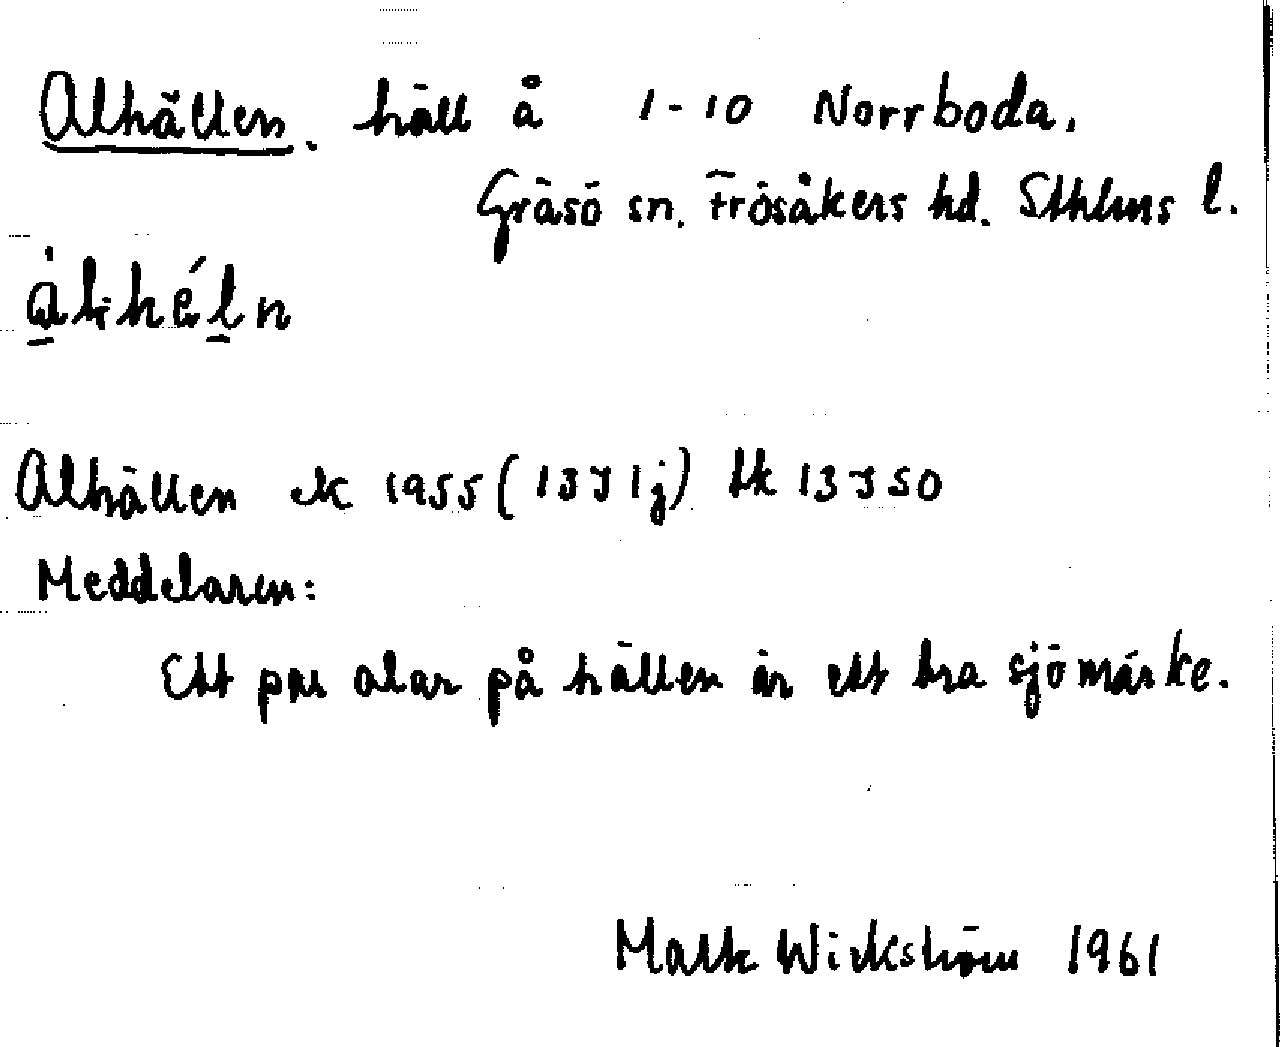 Alhällen. häll å 1-10 Norrboda.
Gräsö sn. Frösåkers hd. Sthlms l.
Alhällen ek 1955 (13J 1j) tk 13J SO
Meddelaren:
Ett par alar på hällen är ett bra sjömärke.
Wickström 1961